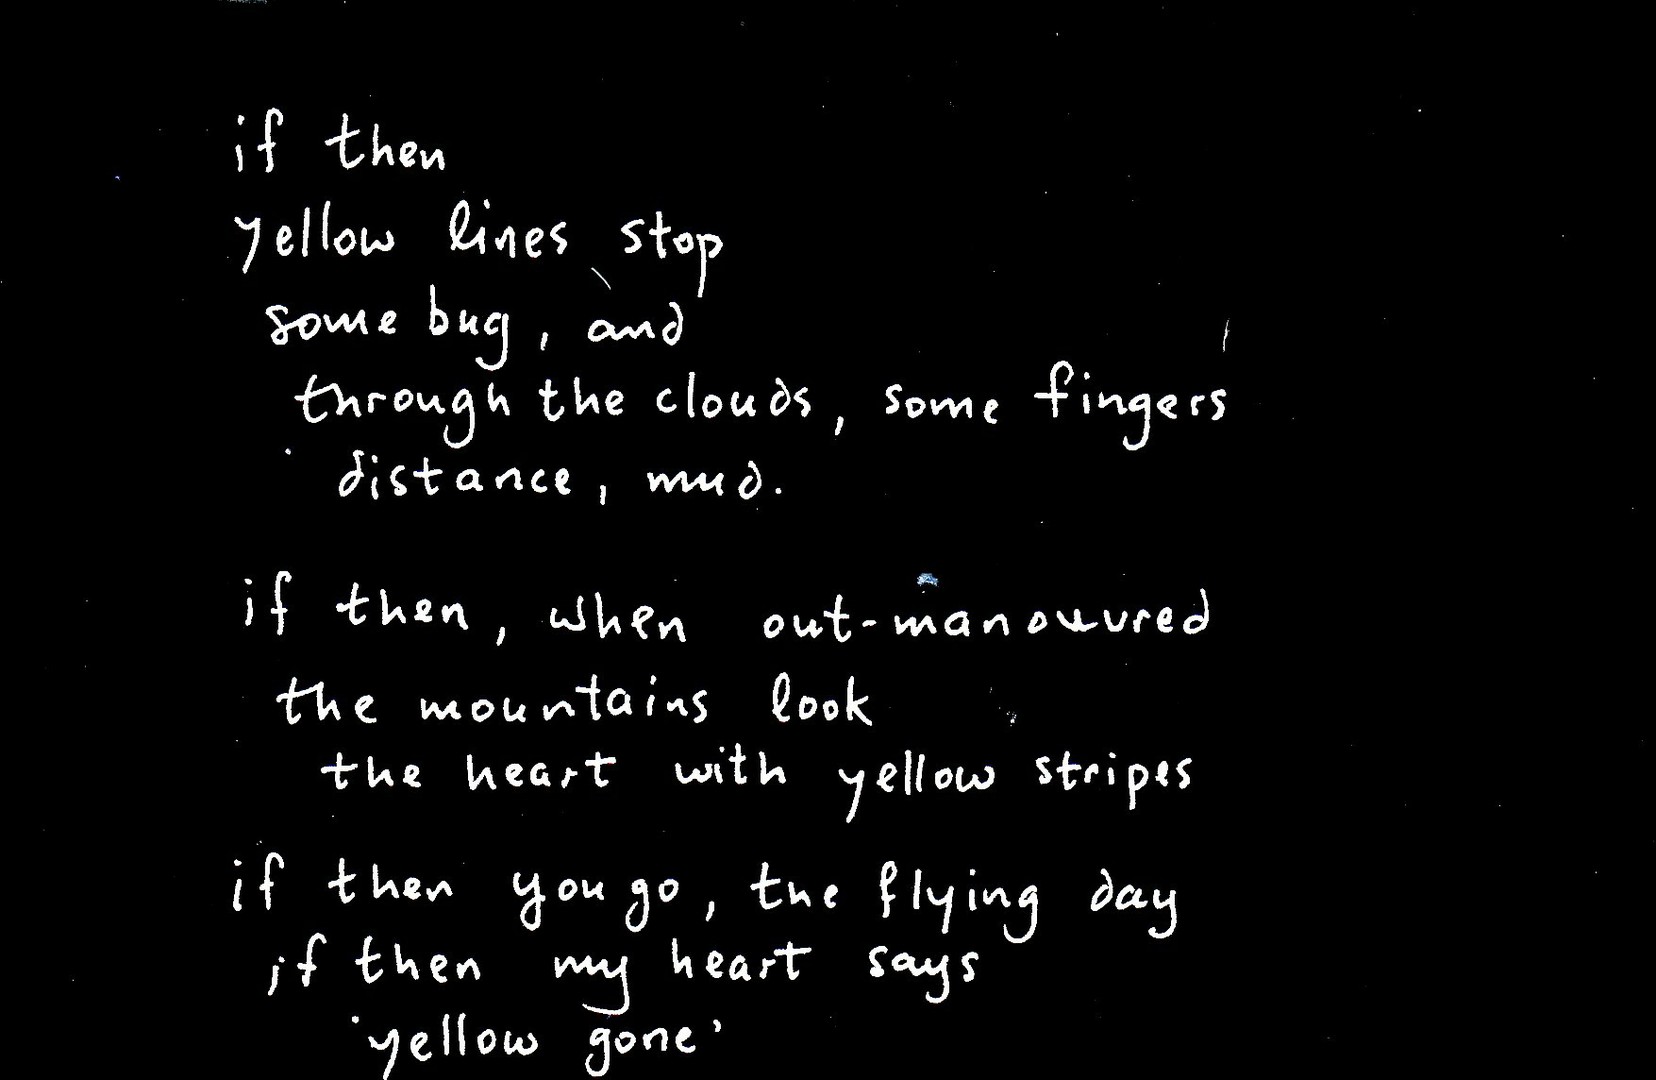 if then
yellow lines stop
some bug, and
through the clouds, some fingers
distance, mud.
if then, when out-manouvred
the mountains look
the heart with yellow stripes
if then you go, the flying day
if then my heart says
'yellow gone'